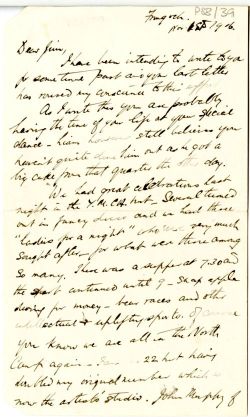 PSB/39
Frongoch
Nov 1916.
Dear Jim,
I have been intending to write to you
for some time past and your last letter
has roused my conscience to this
As I write this you are probably
having the time of your life at your social
dance - still believes you
haven't quite him out as he got a
big cake from that quarter the day.
We had great celebrations last
night in the Y.M.C.A. hut. Several turned
out in fancy dress and we had three
"ladies for a night" who were very much
sought after - for what were three among
so many. There was a supper at 7:30 and
the sport continued until 9 - snap apple
diving for money - races and other
uplifting sports. Of course
you know we are all in the North
Camp again - 22 hut having
my original number which is
now the artists studio. John Murphy of